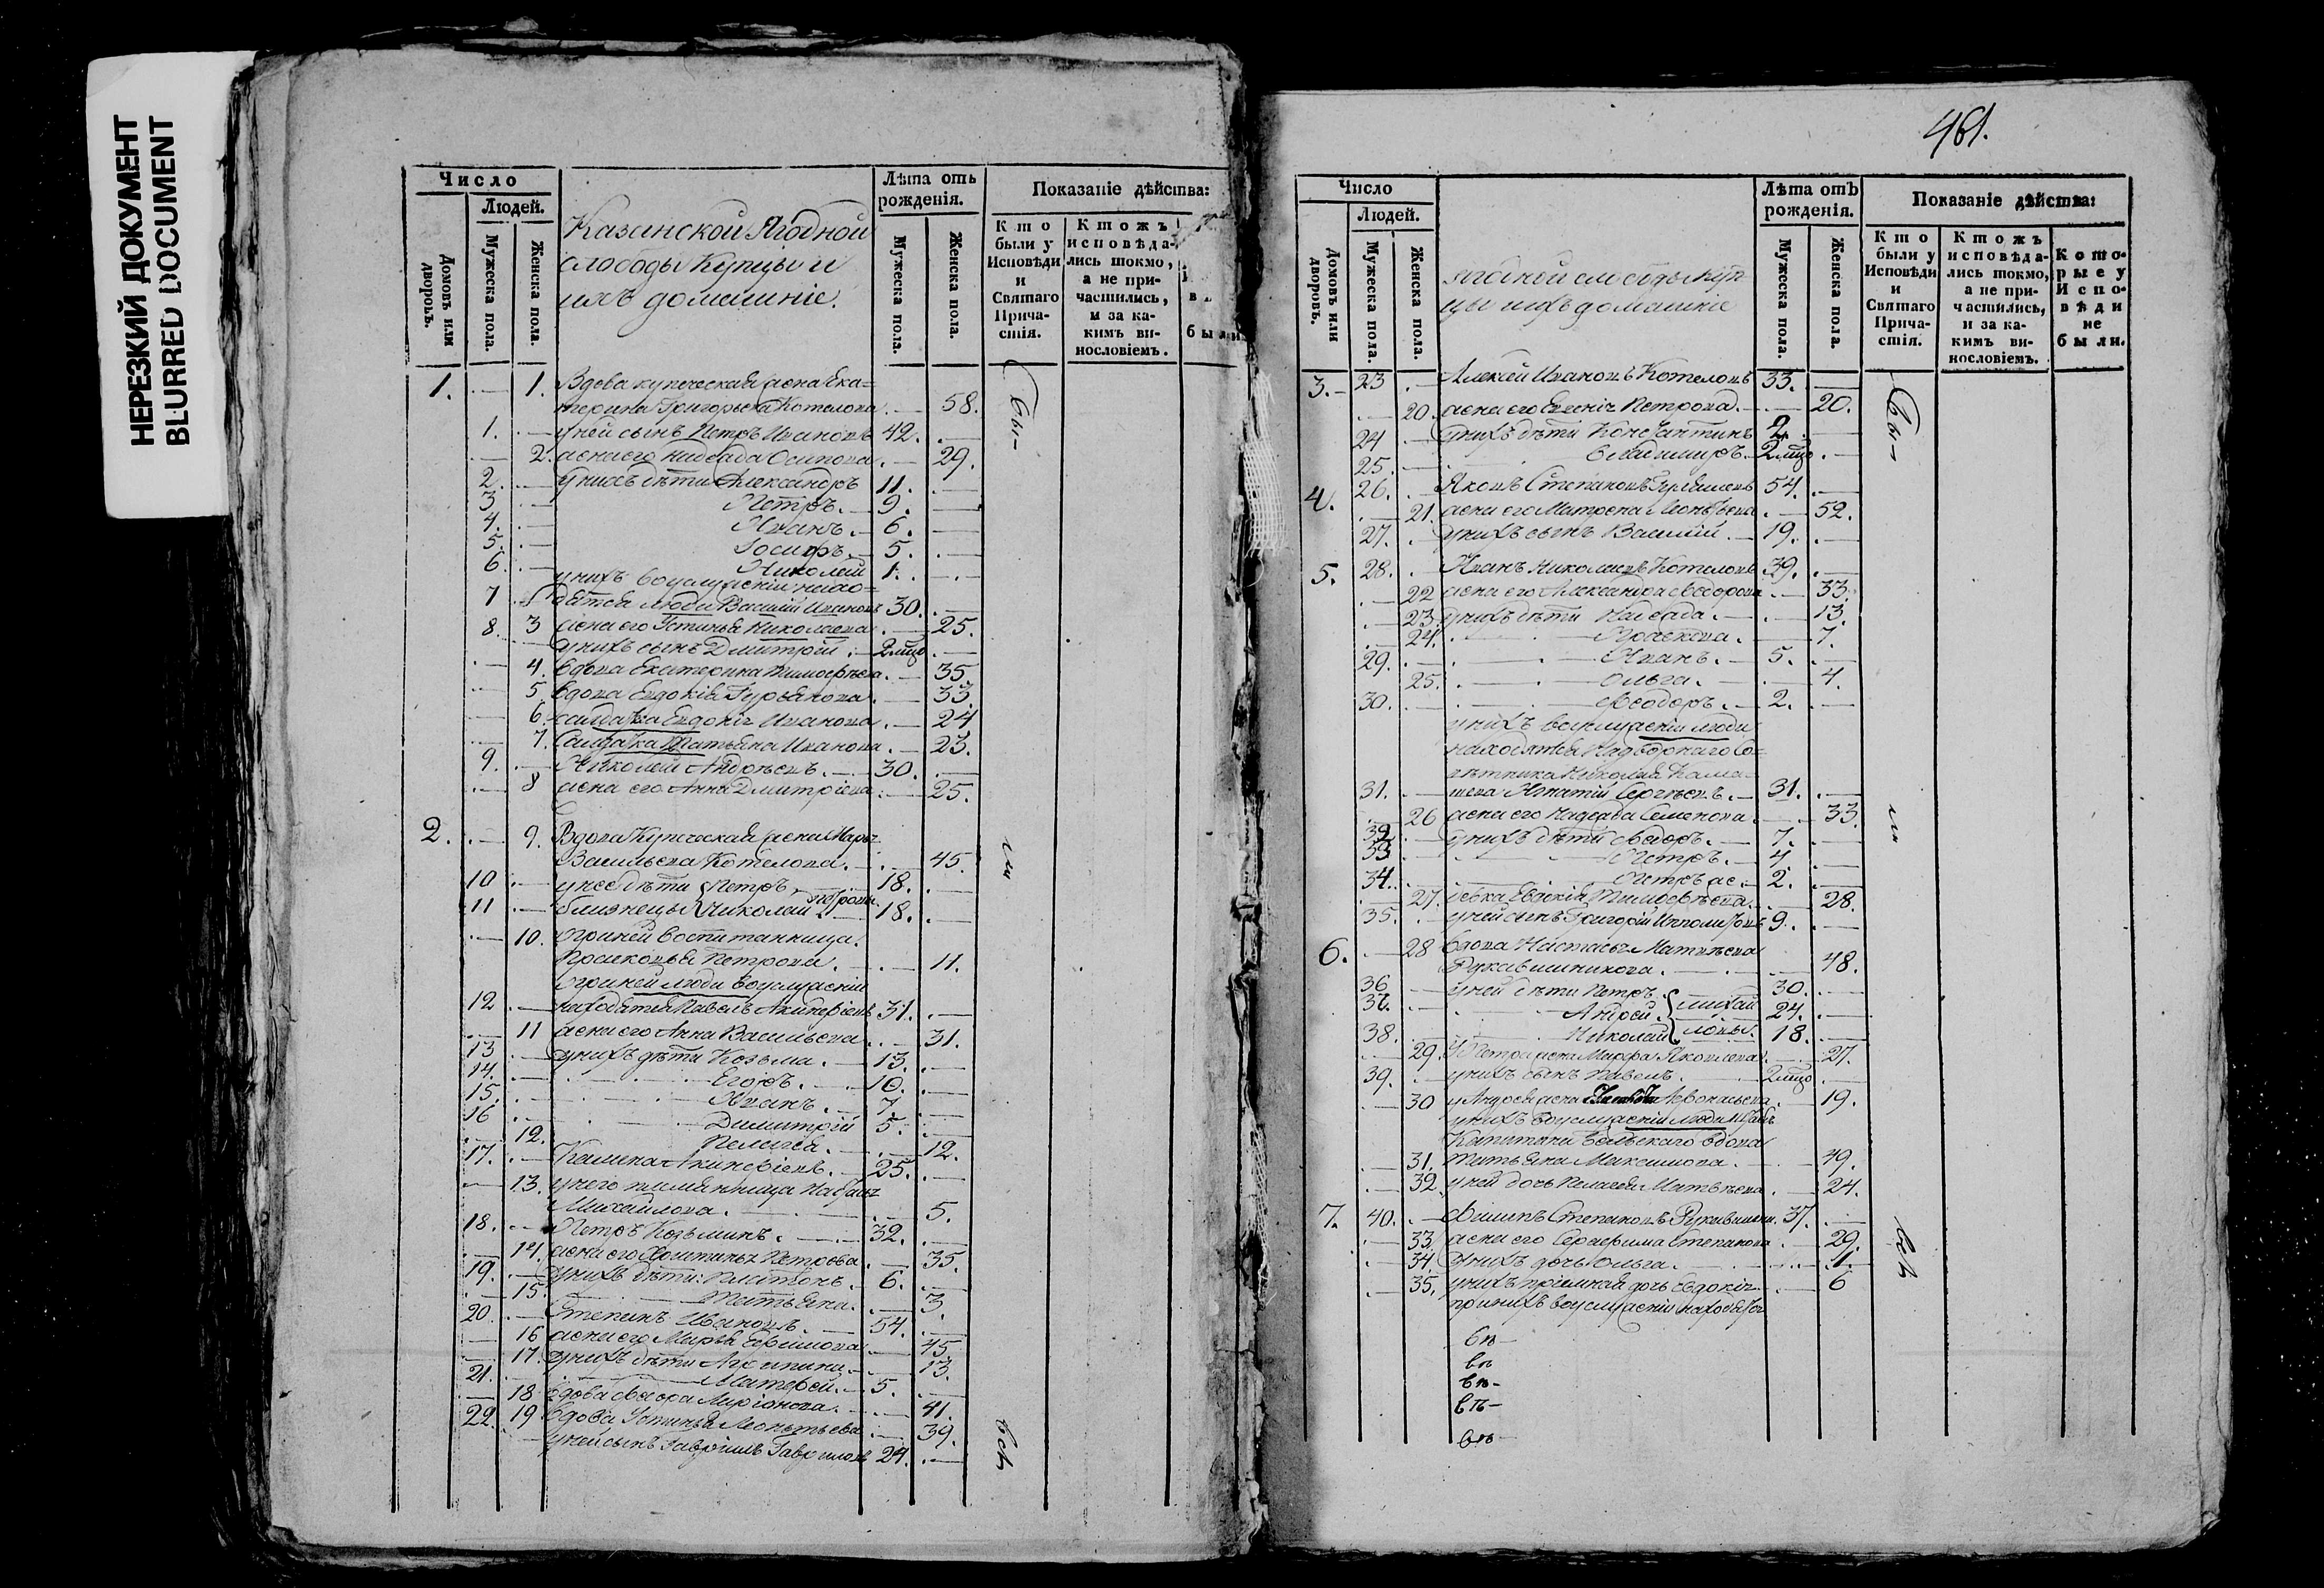 НЕРЕЗКИЙ ДОКУМЕНТ
BLURRED DOCUMENT
Число
Людей.
Домовъ или дворовъ.
Мужеска пола.
Женска пола.
Казанской Ягодной
слободы Купцы и
ихъ домашніе.
Лѣта отъ
рожденія.
Мужеска пола.
Женска пола.
Показаніе дѣйства:
Кто были у Исповѣди и Святаго Причастія.
Ктожъ исповѣдались токмо, а не причастились, и за какимъ винословіемъ.
были
1. — 1. Вдова купеческая жена Ека=
терина Григорьева Котелова — 58.
1. — у ней сынъ Петръ Ивановъ 42. —
— 2. жена его Надежда Осипова — 29.
2. — у нихъ дѣти Александръ 11. —
3. — Петръ. 9. —
4. — Иванъ. 6. —
5. — Іосифъ. 5. —
6. — Николай 1. —
у нихъ во услуженіи нахо=
7 дятся люди Василій Ивановъ 30. —
3 жена его Устинья Николаева — 25.
8. у нихъ сынъ Дмитрій. —
— 4. вдова Екатерина Тимофѣева — 35
— 5 вдова Евдокія Гурьянова — 33.
— 6. салдатка Евдокія Иванова — 24
— 7. Салдатка Татьяна Иванова — 23.
9. — Николай Андрѣевъ. — 30. —
— 8 жена его Анна Дмитріева — 25.
2. — 9. Вдова Купеческая жена Марья
Васильева Котелова. — 45.
10 — у нее дѣти Петръ 18. —
Петровы
11 — близнецы Николай 18. —
— 10. При ней воспитанница
Прасковья Петрова. — 11.
При ней люди во услуженіи
12 — находятся Павелъ 31. —
— 11 жена его Анна Васильева — 31.
13 — у нихъ дѣти Козьма. — 13. —
14. — Егоръ. — 10. —
15. — Иванъ. — 7. —
16 — Димитрій 5. —
— 12. Пелагея. — 12.
17. — 25. —
— 13. у него
Михайлова. — 5.
18. — Петръ Козьминъ. — 32. —
— 14. жена его Петрова — 35.
19. — у нихъ дѣти: Платонъ. 6. —
— 15. Татьяна. — 3.
20. — Степанъ Ивановъ — 54. —
— 16 жена его Марья Ефимова — 45.
— 17. у нихъ дѣти Агрипина — 13.
21. — Матфей. — 5. —
— 18 вдова — 41.
19 вдова Устинья Леонтьева — 39.
22. у ней сынъ Гавріилъ Гавриловъ 24. —
Бы-
ли
всѣ
461.
Число
Людей.
Домовъ или дворовъ.
Мужеска пола.
Женска пола.
Ягодной слободы Куп
цы и ихъ домашніе
Лѣта отъ
рожденія.
Мужеска пола.
Женска пола.
Показаніе дѣйства:
Кто были у Исповѣди и Святаго Причастія.
Ктожъ исповѣдались токмо, а не причастились, и за какимъ винословіемъ.
Которые у Исповѣди не были.
3. — 23 — Алексѣй Ивановъ Котеловъ 33. —
— 20. жена его Евгенія Петрова — 20.
24 — у нихъ дѣти Константинъ 2. —
25. — Владимиръ —
4. 26. — Яковъ Степановъ 54. —
— 21. жена его Матрена Леонтьева — 52.
27. — у нихъ сынъ Василій — 19. —
5. 28. — Иванъ Николаевъ Котеловъ 39. —
— 22 жена его Александра Ѳеодорова — 33.
— 23. у нихъ дѣти Надежда. — 13.
— 24. — 7.
29. — Иванъ. — 5. —
25. Ольга. — 4.
30. — Ѳеодоръ. — 2. —
у нихъ во услуженіи люди
находятся Надворнаго Со=
вѣтника Николая Кама=
31. — шева Игнатій Сергѣевъ. — 31. —
— 26 жена его Надежда Семенова — 33.
32. — у нихъ дѣти Ѳедоръ. — 7. —
33 — Петръ. — 4 —
34. — Петръ же. — 2. —
— 27. дѣвка Евдокія Тимофѣева — 28.
35. — у ней сынъ Григорій Ипполитовъ 9. —
6. — 28 вдова Настасья Матвѣева
Рукавишникова. — 48.
36 — у ней дѣти Петръ 30. —
37. — Андрей. Михай 24. —
38. — Николай ловы. 18. —
— 29. У Петра жена Марфа Яковлева — 27.
39. — у нихъ сынъ Павелъ. —
— 30 у Андрея жена Афонасьева — 19.
у нихъ во услуженіи люди
Капитана вдова
— 31. Татьяна Максимова. — 49.
— 32. у ней дочь Пелагея Матвѣева — 24.
7. 40. — Филипъ Степановъ Рукавишни. 37. —
— 33 жена его Серафима Степанова — 29.
— 34. у нихъ дочь Ольга. — 1.
— 35. у нихъ пріемная дочь Евдокія — 6
при нихъ во услуженіи находятся
Бы-
ли
всѣ